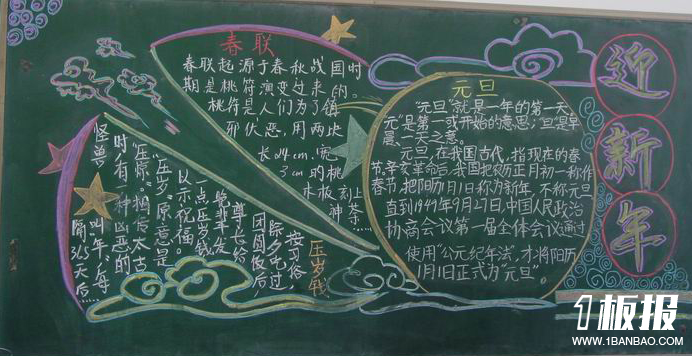 春联
春联起源于春秋战国时
期是桃符演变过来的。
桃符是人们为了镇
邪伏恶,用两块
长24cm、宽
3cm的桃
木板刻上
神荼……
元旦
"元旦"就是一年的第一天。
元"是第一或开始的意思;旦"是早
晨、一天之意。
元旦,在我国古代,指现在的春
节,辛亥革命后,我国把农历正月初一称作
春节,把阳历1月1日称为新年,不称元旦
直到1949年9月27日,中国人民政治
协商会议第一届全体会议通过
使用"公元纪年法",才将阳历
1月1日正式为"元旦"。
迎新年
压岁钱
按习俗,
除夕吃过
团圆饭后
尊长给
晚辈发
一点压岁钱
以示祝福。
"压岁"原意是
"压惊",相传太古
时,有一种凶恶的
怪兽叫"年",每
隔365天后……
1板报
WWW.1BANBAO.COM